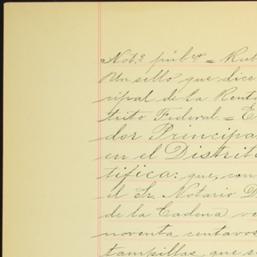 Not.º púb.co = Rub
Un sello que dice
cipal de la Rent
trito Federal = E
dor Principa
en el Distrit
tifica: que, con
el Sr. Notario D
de la Cadena ve
noventa centavos
tampillas, que s